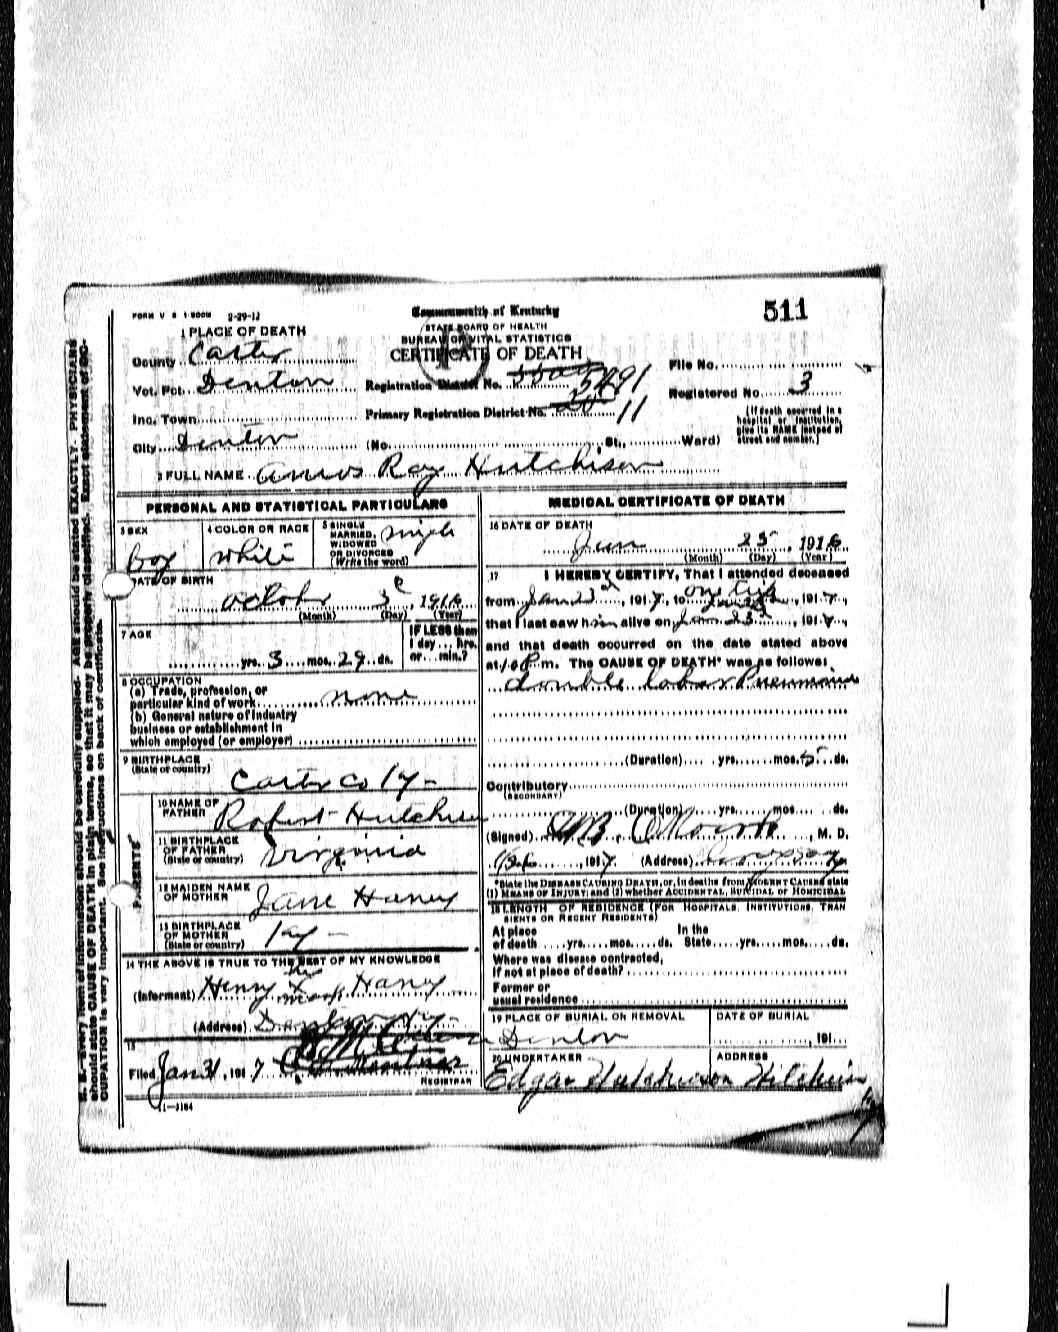 FORM V S 1-500M 2-29-12
Commonwealth of Kentucky
511
1 PLACE OF DEATH
STATE BOARD OF HEALTH
BUREAU OF VITAL STATISTICS
CERTIFICATE OF DEATH
County Carter
File No.
Vot. Pct. Denton
Registration District No. 5491
Registered No. 3
Inc. Town
Primary Registration District No. 11
(If death occurred in a hospital or institution, give its NAME instead of street and number.)
City Denton (No. St., Ward)
2 FULL NAME Amos Ray Hutchison
PERSONAL AND STATISTICAL PARTICULARS
3 SEX
boy
4 COLOR OR RACE
white
5 SINGLE MARRIED, WIDOWED OR DIVORCED (Write the word)
single
DATE OF BIRTH
October 3, 1916
(Month) (Day) (Year)
7 AGE
yrs. 3 mos. 29 ds.
IF LESS than 1 day ... hrs. or ... min.?
8 OCCUPATION
(a) Trade, profession, or particular kind of work none
(b) General nature of industry business or establishment in which employed (or employer)
9 BIRTHPLACE
(State or country)
Carter Co Ky -
PARENTS
10 NAME OF FATHER Robert Hutchison
11 BIRTHPLACE OF FATHER (State or country) Virginia
12 MAIDEN NAME OF MOTHER Jane Haney
13 BIRTHPLACE OF MOTHER (State or country) Ky -
14 THE ABOVE IS TRUE TO THE BEST OF MY KNOWLEDGE
his
(Informant) Henry X Haney
mark
(Address)
15
Filed Jan 31, 1917
REGISTRAR
11-3184
MEDICAL CERTIFICATE OF DEATH
16 DATE OF DEATH
Jan 25, 1916
(Month) (Day) (Year)
17 I HEREBY CERTIFY, That I attended deceased
from Jan 23, 1917, to one trip, 1917,
that I last saw him alive on Jan 23, 1917,
and that death occurred on the date stated above
at m. The CAUSE OF DEATH* was as follows:
double lobar Pneumonia
(Duration) yrs. mos. 5 ds.
Contributory
(SECONDARY)
(Duration) yrs. mos. ds.
(Signed) , M. D.
, 1917 (Address)
*State the DISEASE CAUSING DEATH, or, in deaths from VIOLENT CAUSES state
(1) MEANS OF INJURY; and (2) whether ACCIDENTAL, SUICIDAL or HOMICIDAL
18 LENGTH OF RESIDENCE (FOR HOSPITALS, INSTITUTIONS, TRANSIENTS OR RECENT RESIDENTS)
At place of death yrs. mos. ds. In the State yrs. mos. ds.
Where was disease contracted,
If not at place of death?
Former or
usual residence
19 PLACE OF BURIAL OR REMOVAL
Denton
DATE OF BURIAL
, 191
20 UNDERTAKER
Edgar Hutchison
ADDRESS
Hitchins
N. B.—Every item of information should be carefully supplied. AGE should be stated EXACTLY. PHYSICIANS
should state CAUSE OF DEATH in plain terms, so that it may be properly classified. Exact statement of OC-
CUPATION is very important. See instructions on back of certificate.